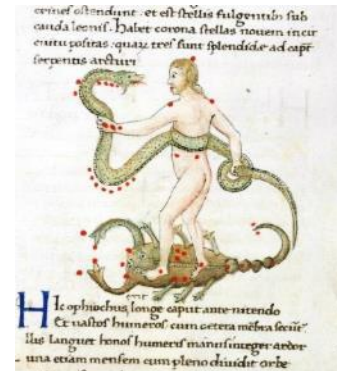 crines ostendunt. et est stellis fulgentib sub
cauda leonis. Habet corona stellas novem in cir
cuitu positas. quaꝝ tres sunt splendidę ad capt
serpentis arcturi
Hic ophiuchus longe caput ante nitendo
Et vastos humeros cum cetera mēbra secunt̄
Illis languet honos humeris manus integer ardor
una etiam mensem cum pleno dividit orbe